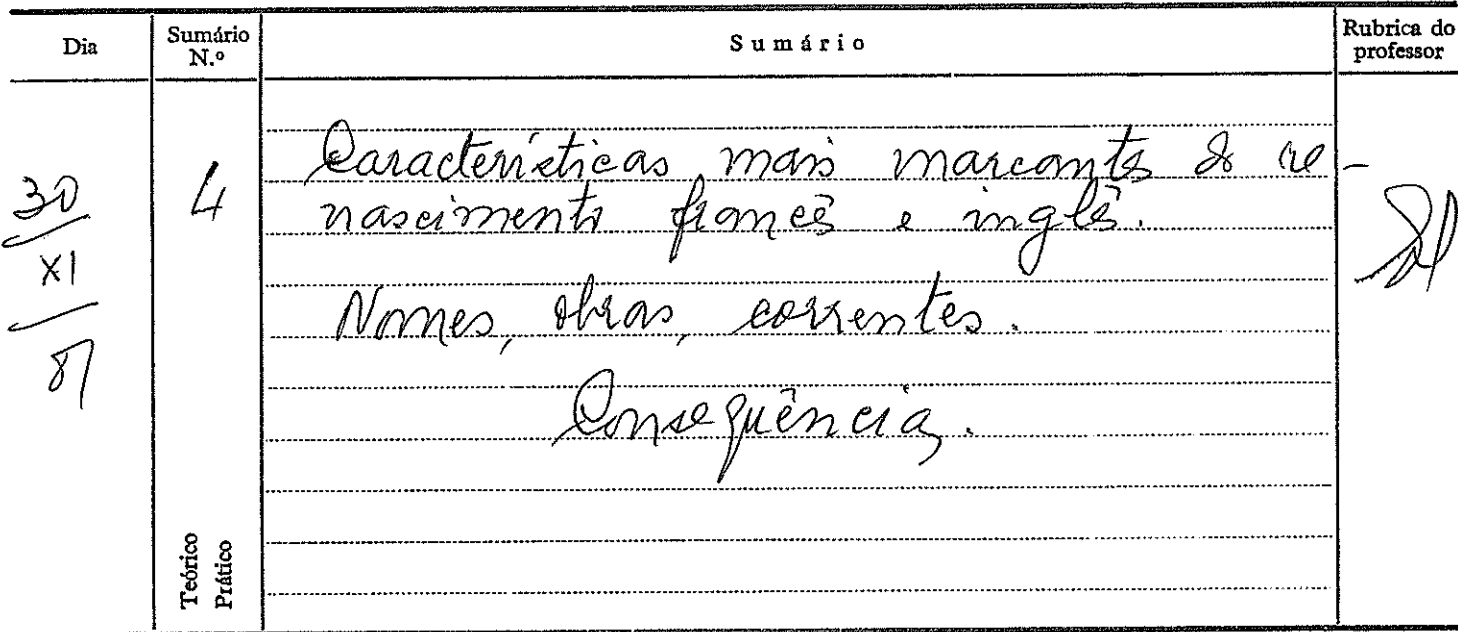 Dia
Sumário N.º
Sumário
Rubrica do professor
30
XI
87
4
Características mais marcantes do re-
nascimento francês e inglês.
Nomes, obras, correntes.
Consequências.
Teórico
Prático